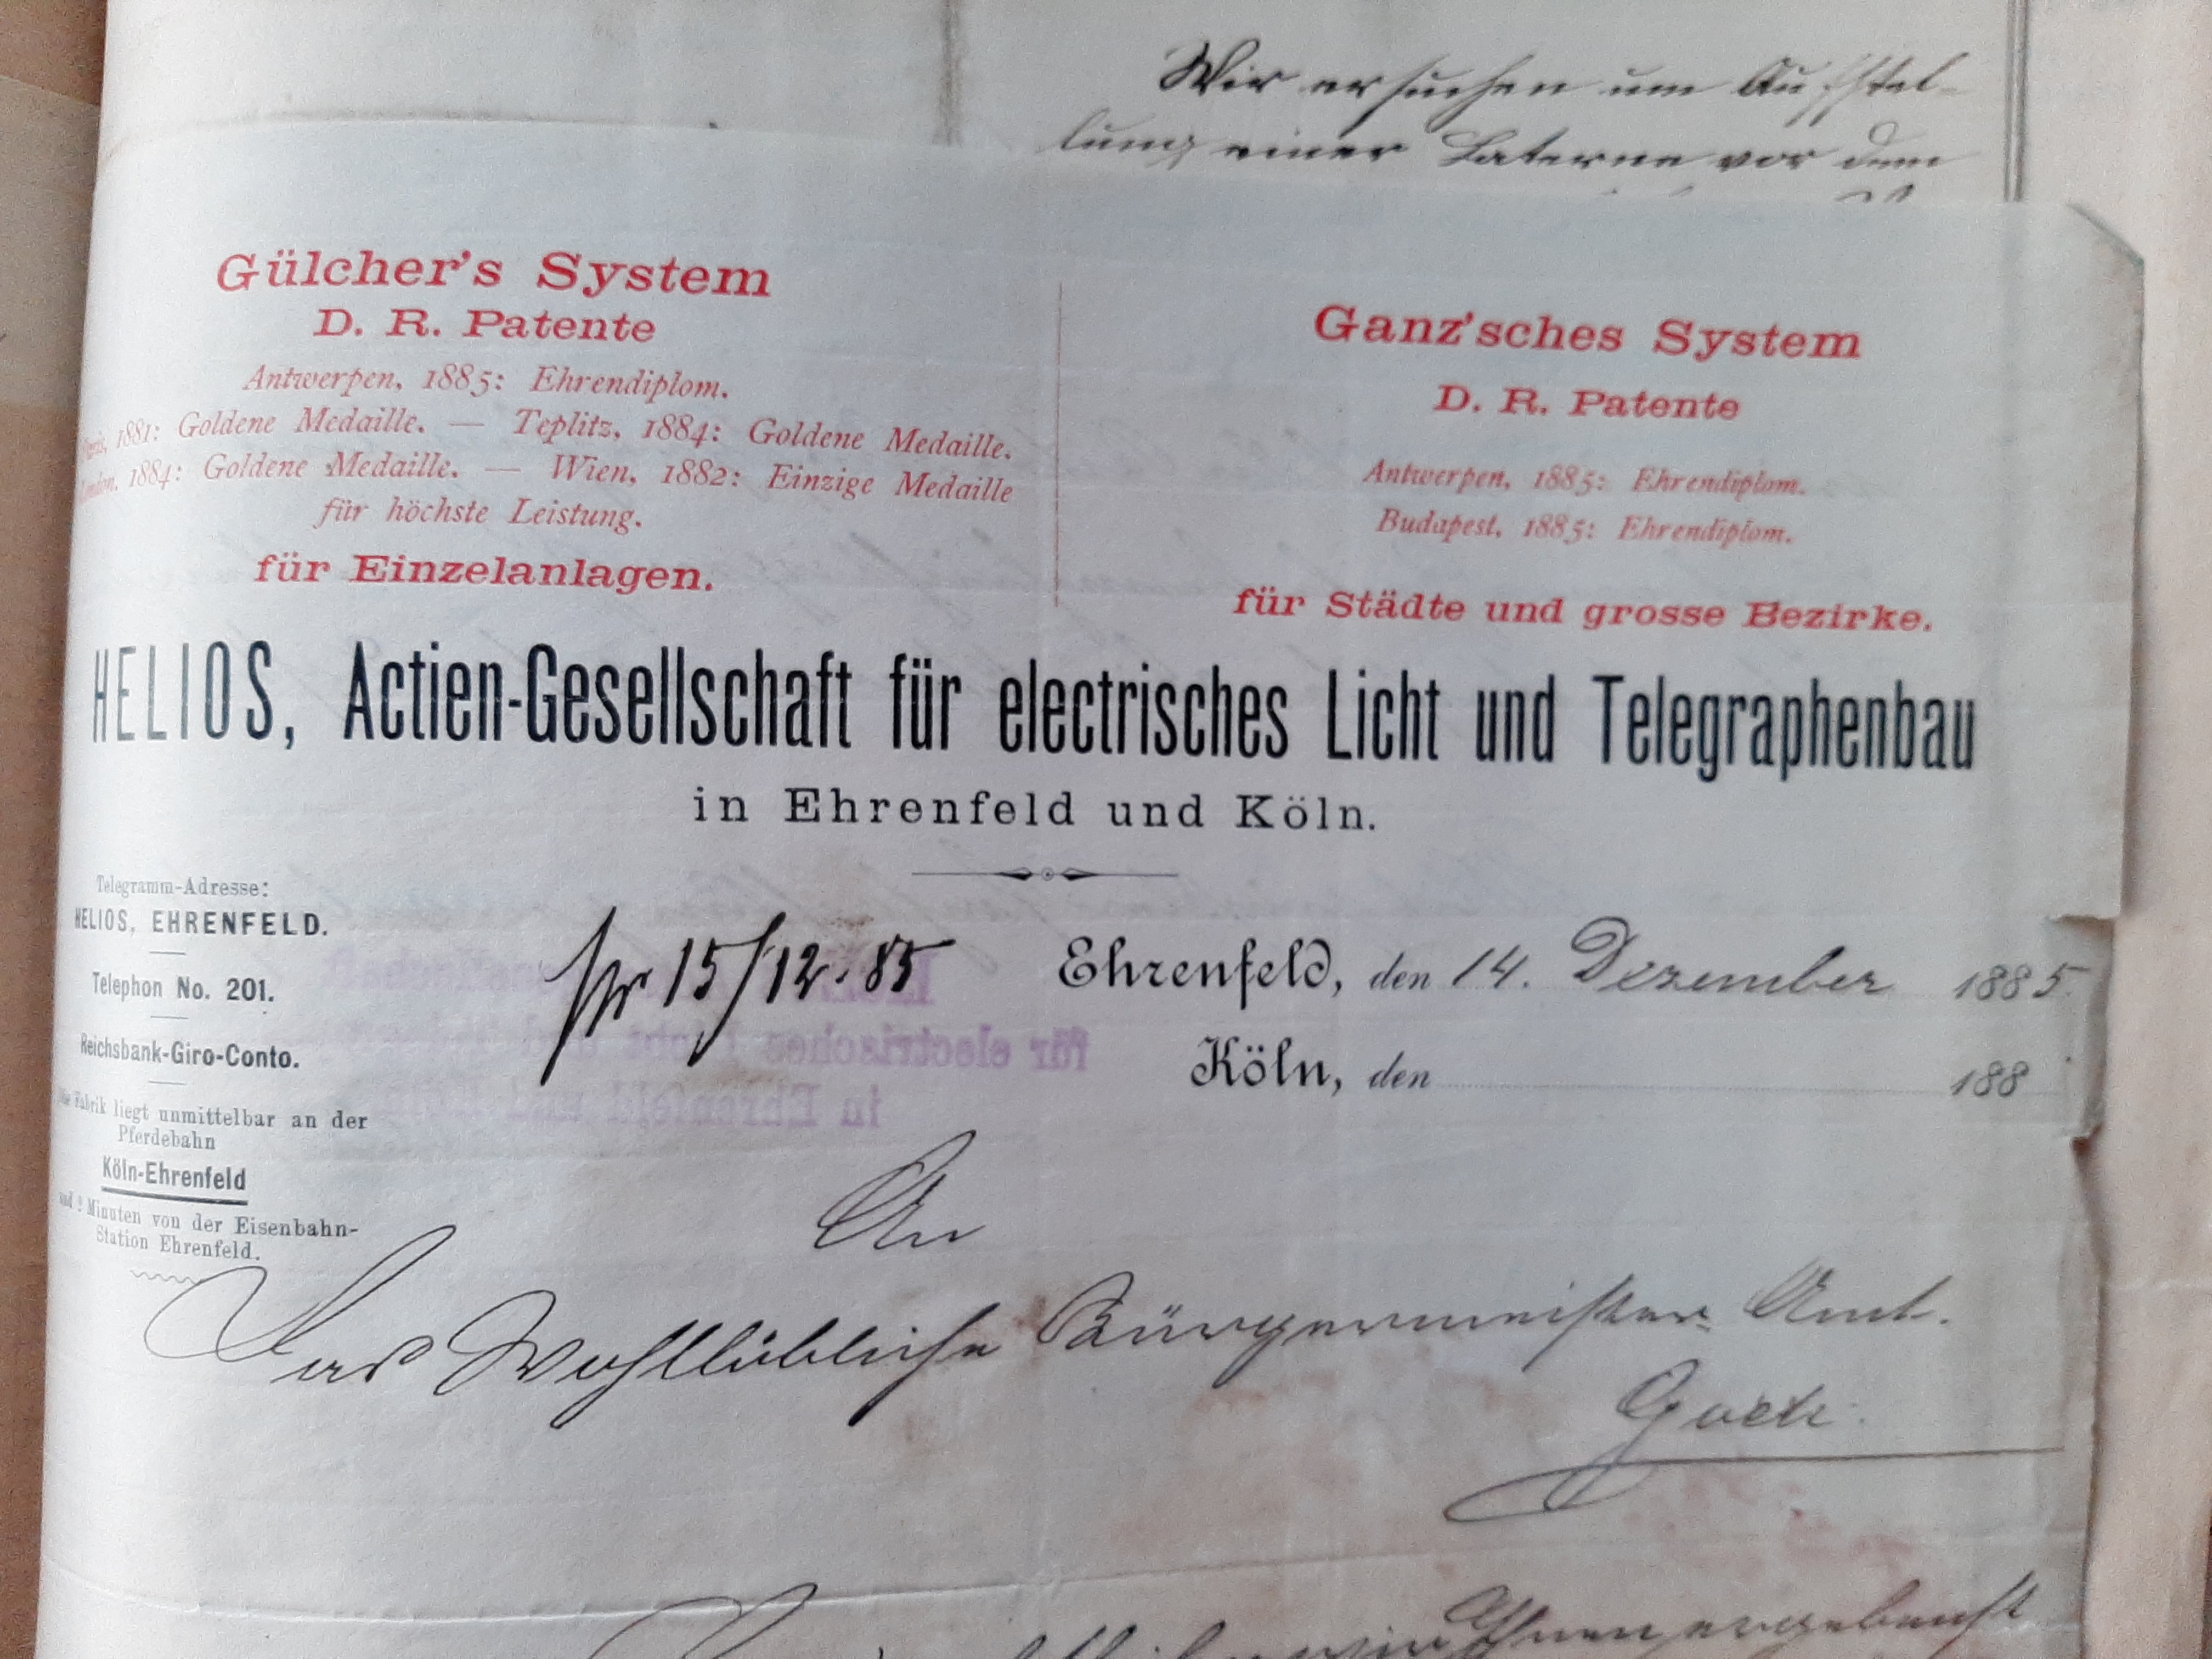 Wir ersuchen um Aufstel-
lung einer Laterne vor dem
Gülcher's System
D. R. Patente
Antwerpen, 1885: Ehrendiplom.
Paris, 1881: Goldene Medaille. — Teplitz, 1884: Goldene Medaille.
London, 1884: Goldene Medaille. — Wien, 1882: Einzige Medaille
für höchste Leistung.
für Einzelanlagen.
Ganz'sches System
D. R. Patente
Antwerpen, 1885: Ehrendiplom.
Budapest, 1885: Ehrendiplom.
für Städte und grosse Bezirke.
HELIOS, Actien-Gesellschaft für electrisches Licht und Telegraphenbau
in Ehrenfeld und Köln.
Telegramm-Adresse:
HELIOS, EHRENFELD.
Telephon No. 201.
Reichsbank-Giro-Conto.
Fabrik liegt unmittelbar an der
Pferdebahn
Köln-Ehrenfeld
und 2 Minuten von der Eisenbahn-
Station Ehrenfeld.
pr 15/12. 85
Ehrenfeld, den 14. Dezember 1885.
Köln, den 188
für electrisches
in Ehrenfeld und Köln
An
Das Wohllöbliche Bürgermeister-Amt.
Goch.
wir Ihnen ergebenst